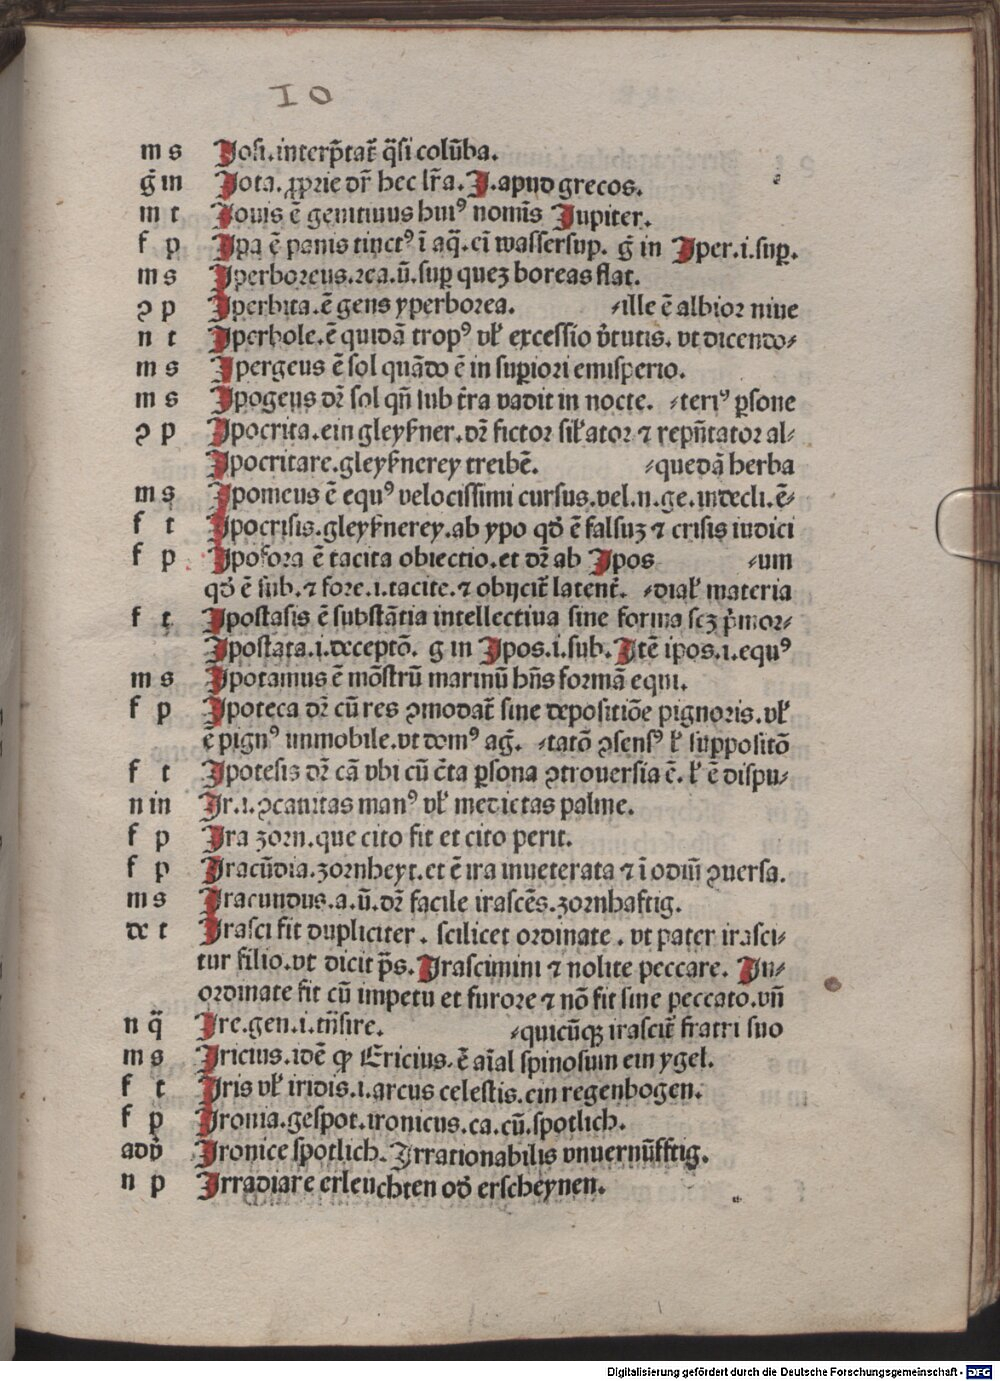 IO
m s Josi.interp̄tat᷑ q̄si colūba.
ḡ in Jota. ꝓprie dr̄ hec lr̄a.J.apud grecos.
m t Jouis ē genitiuus huiꝰ nomīs Jupiter.
f p Jpa ē panis tinctꝰ ī aq̄.eī wassersup. ḡ in Jper.i.suꝑ.
m s Jperboreus.rea.ū.suꝑ queꝫ boreas flat.
ꝯ p Jperbita.ē gens yperborea. ⸗ille ē albior niue
n t Jperbole.ē quidā tropꝰ vl̓ excessio v̓tutis. vt dicendo⸗
m s Jpergeus ē sol quādo ē in suꝑiori emisperio.
m s Jpogeus dr̄ sol qn̄ sub t̓ra vadit in nocte. ⸗teriꝰ ꝑsone
ꝯ p Jpocrita.ein gleyßner.dr̄ fictor sil̓ator ⁊ repn̄tator al⸗
Jpocritare.gleyßnerey treibē. ⸗quedā herba
m s Jpomeus ē equꝰ velocissimi cursus.vel.n.ge.indecli.ē⸗
f t Jpocrisis.gleyßnerey.ab ypo qd̓ ē falsuꝫ ⁊ crisis iudici
f p Jpofora ē tacita obiectio.et dr̄ ab Jpos ⸗um
qd̓ ē sub.⁊ fore.i.tacite.⁊ obijcit᷑ latent᷑. ⸗dial̓ materia
f t Jpostasis ē substātia intellectiua sine forma scꝫ p̓mor⸗
Jpostata.i.deceptō. g in Jpos.i.sub.Jtē ipos.i.equꝰ
m s Jpotamus ē mōstrū marinū hn̄s formā equi.
f p Jpoteca dr̄ cū res ꝯmodat᷑ sine depositiōe pignoris.vl̓
ē pignꝰ inmobile.vt domꝰ ag᷑. ⸗tatō ꝯsensꝰ l̓ suppositō
f t Jpotesis dr̄ cā vbi cū c̄ta ꝑsona ꝯtrouersia ē. l̓ ē dispu⸗
n in Jr.i.ꝯcauitas manꝰ vl̓ medietas palme.
f p Jra zorn.que cito fit et cito perit.
f p Jracūdia.zornheyt.et ē ira inueterata ⁊ ī odiū ꝯuersa.
m s Jracundus.a.ū.dr̄ facile irascēs.zornhaftig.
de t Jrasci fit dupliciter . scilicet ordinate . vt pater irasci⸗
tur filio.vt dicit p̄s.Jrascimini ⁊ nolite peccare. Jn⸗
ordinate fit cū impetu et furore ⁊ nō fit sine peccato.vn̄
n q̄ Jre.gen.i.trn̄sire. ⸗quicūqꝫ irascit᷑ fratri suo
m s Jricius.idē ꝙ Ericius.ē aīal spinosum ein ygel.
f t Jris vl̓ iridis.i.arcus celestis.ein regenbogen.
f p Jronia.gespot.ironicus.ca.cū.spotlich.
adv̓ Jronice spotlich. Jrrationabilis vnuernūfftig.
n p Jrradiare erleuchten od̓ erscheynen.
Digitalisierung gefördert durch die Deutsche Forschungsgemeinschaft - DFG